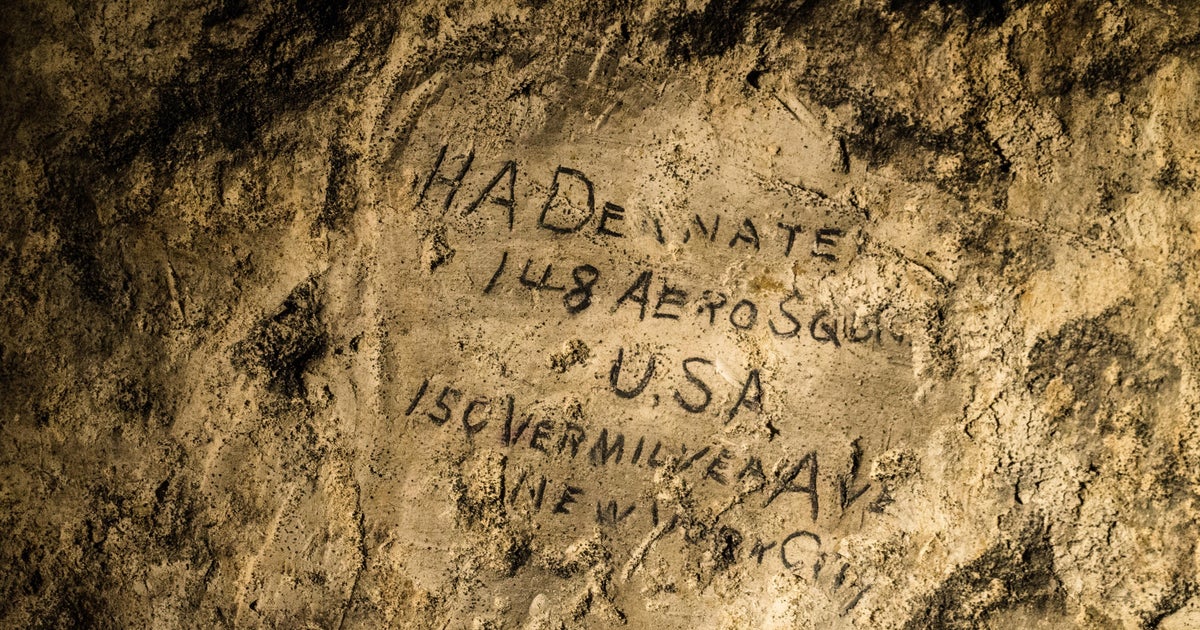 HA DEANATE
148 AERO SQUR
U.SA
150 VERMILYEA AVE
NEW YORK CITY